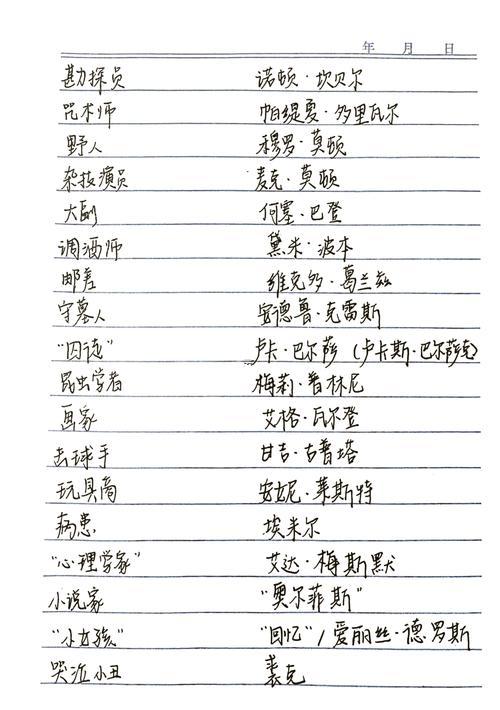 年 月 日
勘探员 诺顿·坎贝尔
咒术师 帕缇夏·多里瓦尔
野人 穆罗·莫顿
杂技演员 麦克·莫顿
大副 何塞·巴登
调酒师 黛米·波本
邮差 维克多·葛兰兹
守墓人 安德鲁·克雷斯
“囚徒” 卢卡·巴尔萨（卢卡斯·巴尔萨克）
昆虫学者 梅莉·普林尼
画家 艾格·瓦尔登
击球手 甘吉·古普塔
玩具商 安妮·莱斯特
病患 埃米尔
“心理学家” 艾达·梅斯默
小说家 “奥尔菲斯”
“小女孩” “回忆”/爱丽丝·德罗斯
哭泣小丑 裘克